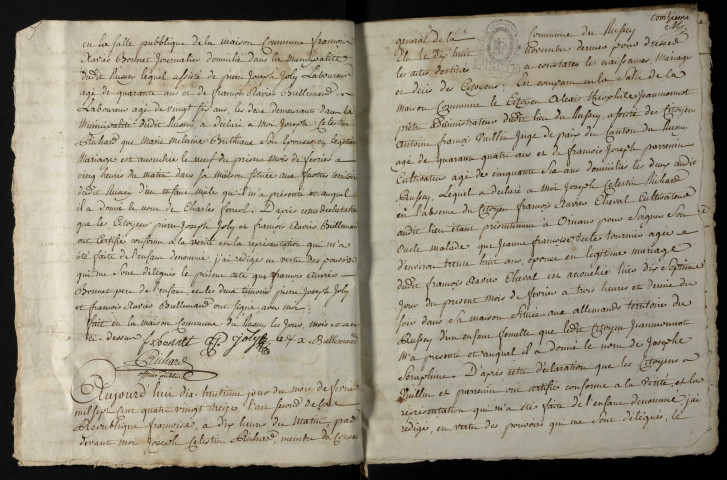 en la salle publique de la maison Commune francois
Xavier Bonnet Journalier domicilié dans la municipalité
dudit hussey lequel assisté de pierre Joseph Joly Laboureur
agé de quarante ans et de françois Xavier Bullemand
Laboureur agé de vingt six ans, les deux demeurants dans la
Municipalité dudit hussey, a déclaré a Moi Joseph Celestin
Richard que Marie melanie son Epouse en légitime
Mariage est accouchée le neuf du présent mois de fevrier a
cinq heures du matin dans sa maison située aux
dudit hussey d'un enfant mâle qu'il m'a présenté et auquel
il a donné le nom de Charles Joseph. D'après cette déclaration
que les Citoyens pierre Joseph Joly et françois Xavier Bullemand
ont Certifié conforme a la verité et la représentation qui m'a
été faite de l'enfant dénommé, j'ai rédigé en vertu des pouvoirs
qui me sont délégués le présent acte que francois Xavier
Bonnet pere de l'enfant et les deux témoins pierre Joseph Joly
et francois Xavier Bullemand ont signé avec moi
fait en la maison Commune du hussey les Jour, mois et an
ci dessus
Joly f. X. Bullemand
Richard
officier public
Aujourd'hui dix huitieme jour du mois de fevrier
mil sept cent quatre vingt treize l'an second de la
République francoise, a dix heures du Matin, pard
devant moi Joseph Celestin Richard membre du Conseil
général de la Commune du hussey
élu le dix huit Novembre dernier pour dresser
les actes destinés a constater les naissances, mariages
et décès des Citoyens. En comparu en la Salle de la
Maison Commune le Citoyen Alexis théophile Jeannernot
prêtre Administrateur dudit lieu du hussey, assisté des Citoyens
Antoine francois Vuillin Juge de paix du Canton du hussey
agé de quarante quatre ans et de francois Joseph parrenin
Cultivateur agé de cinquante six ans domiciliés les deux audit
hussey, Lequel a déclaré a moi Joseph Celestin Richard
en l'absence du Citoyen françois Xavier Cheval Cultivateur
audit lieu étant présentement a Ornans pour Soigner Son
Oncle malade que Jeanne françoise tournier agée
d'environ trente huit ans, épouse en légitime mariage
dudit francois Xavier Cheval est accouchée hier dix Septième
Jour du present mois de fevrier a trois heures et demie du
soir dans sa maison située aux allemands territoire du
hussey d'un enfant femelle que ledit citoyen Jeannernot
m'a présenté et auquel il a donné le nom de Josephe
Seraphine. D'après cette déclaration que les Citoyens
Vuillin et parrenin ont certifié conforme a la verité et la
représentation qui m'a été faite de l'enfant denommé j'ai
rédigé, en vertu des pouvoirs qui me sont délégués, le